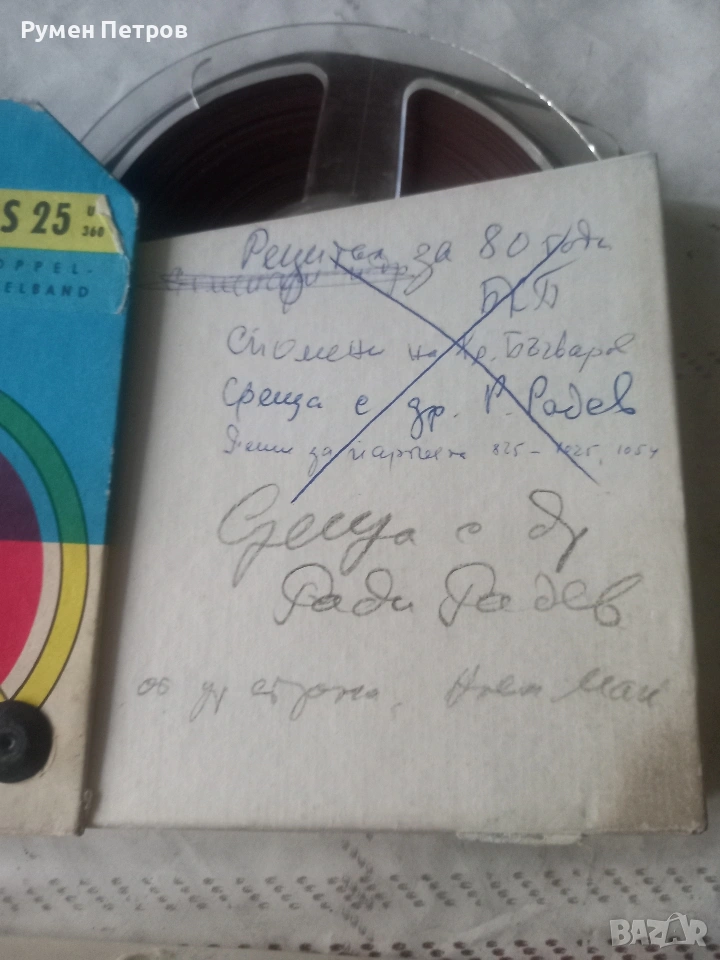 Румен Петров
S 25
U
360
OPPEL-
ELBAND
Рецитал за 80 годи
БКП
Спомени на Хр. Бъчваров
Среща с др. Р. Радев
за 825 – 1025, 1054
Среща с др
Ради Радев
от др страна,
BAZAR